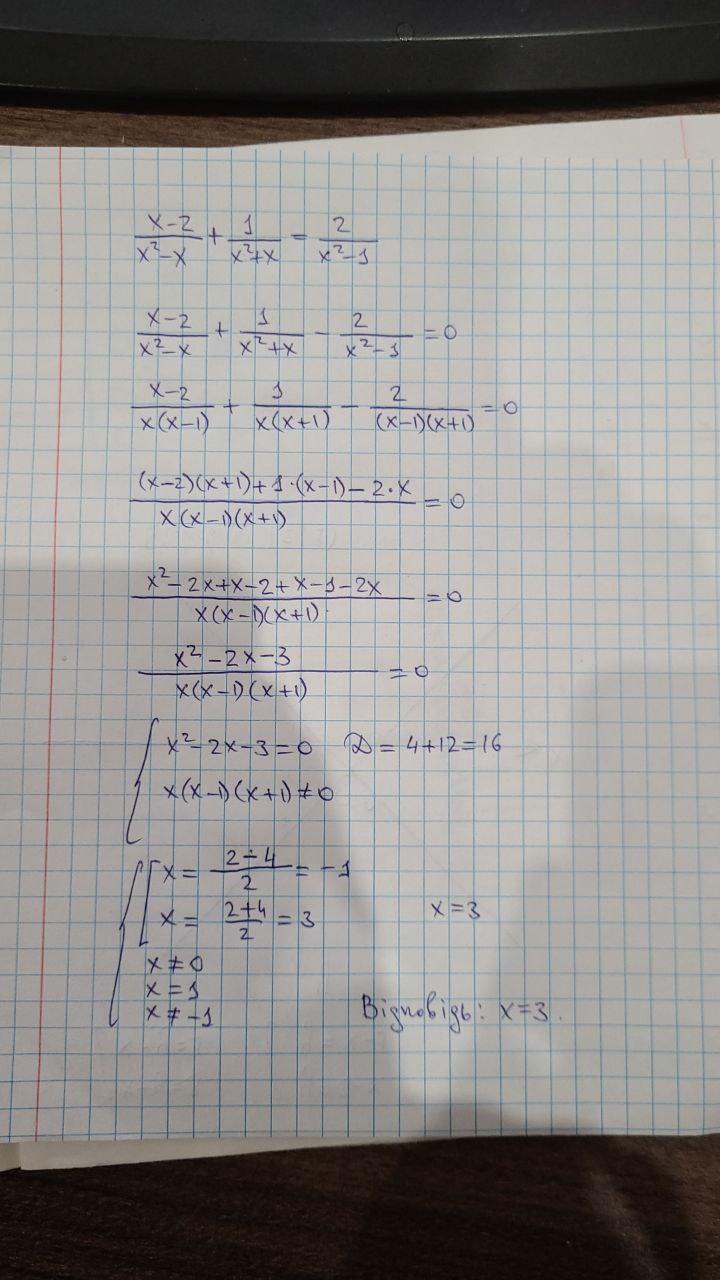 (x-2)/(x²-x) + 1/(x²+x) = 2/(x²-1)
(x-2)/(x²-x) + 1/(x²+x) - 2/(x²-1) = 0
(x-2)/(x(x-1)) + 1/(x(x+1)) - 2/((x-1)(x+1)) = 0
((x-2)(x+1)+1·(x-1)-2·x)/(x(x-1)(x+1)) = 0
(x²-2x+x-2+x-1-2x)/(x(x-1)(x+1)) = 0
(x²-2x-3)/(x(x-1)(x+1)) = 0
x²-2x-3=0 D = 4+12=16
x(x-1)(x+1)≠0
x = (2-4)/2 = -1
x = (2+4)/2 = 3 x=3
x≠0
x=1
x≠-1 Відповідь: x=3.